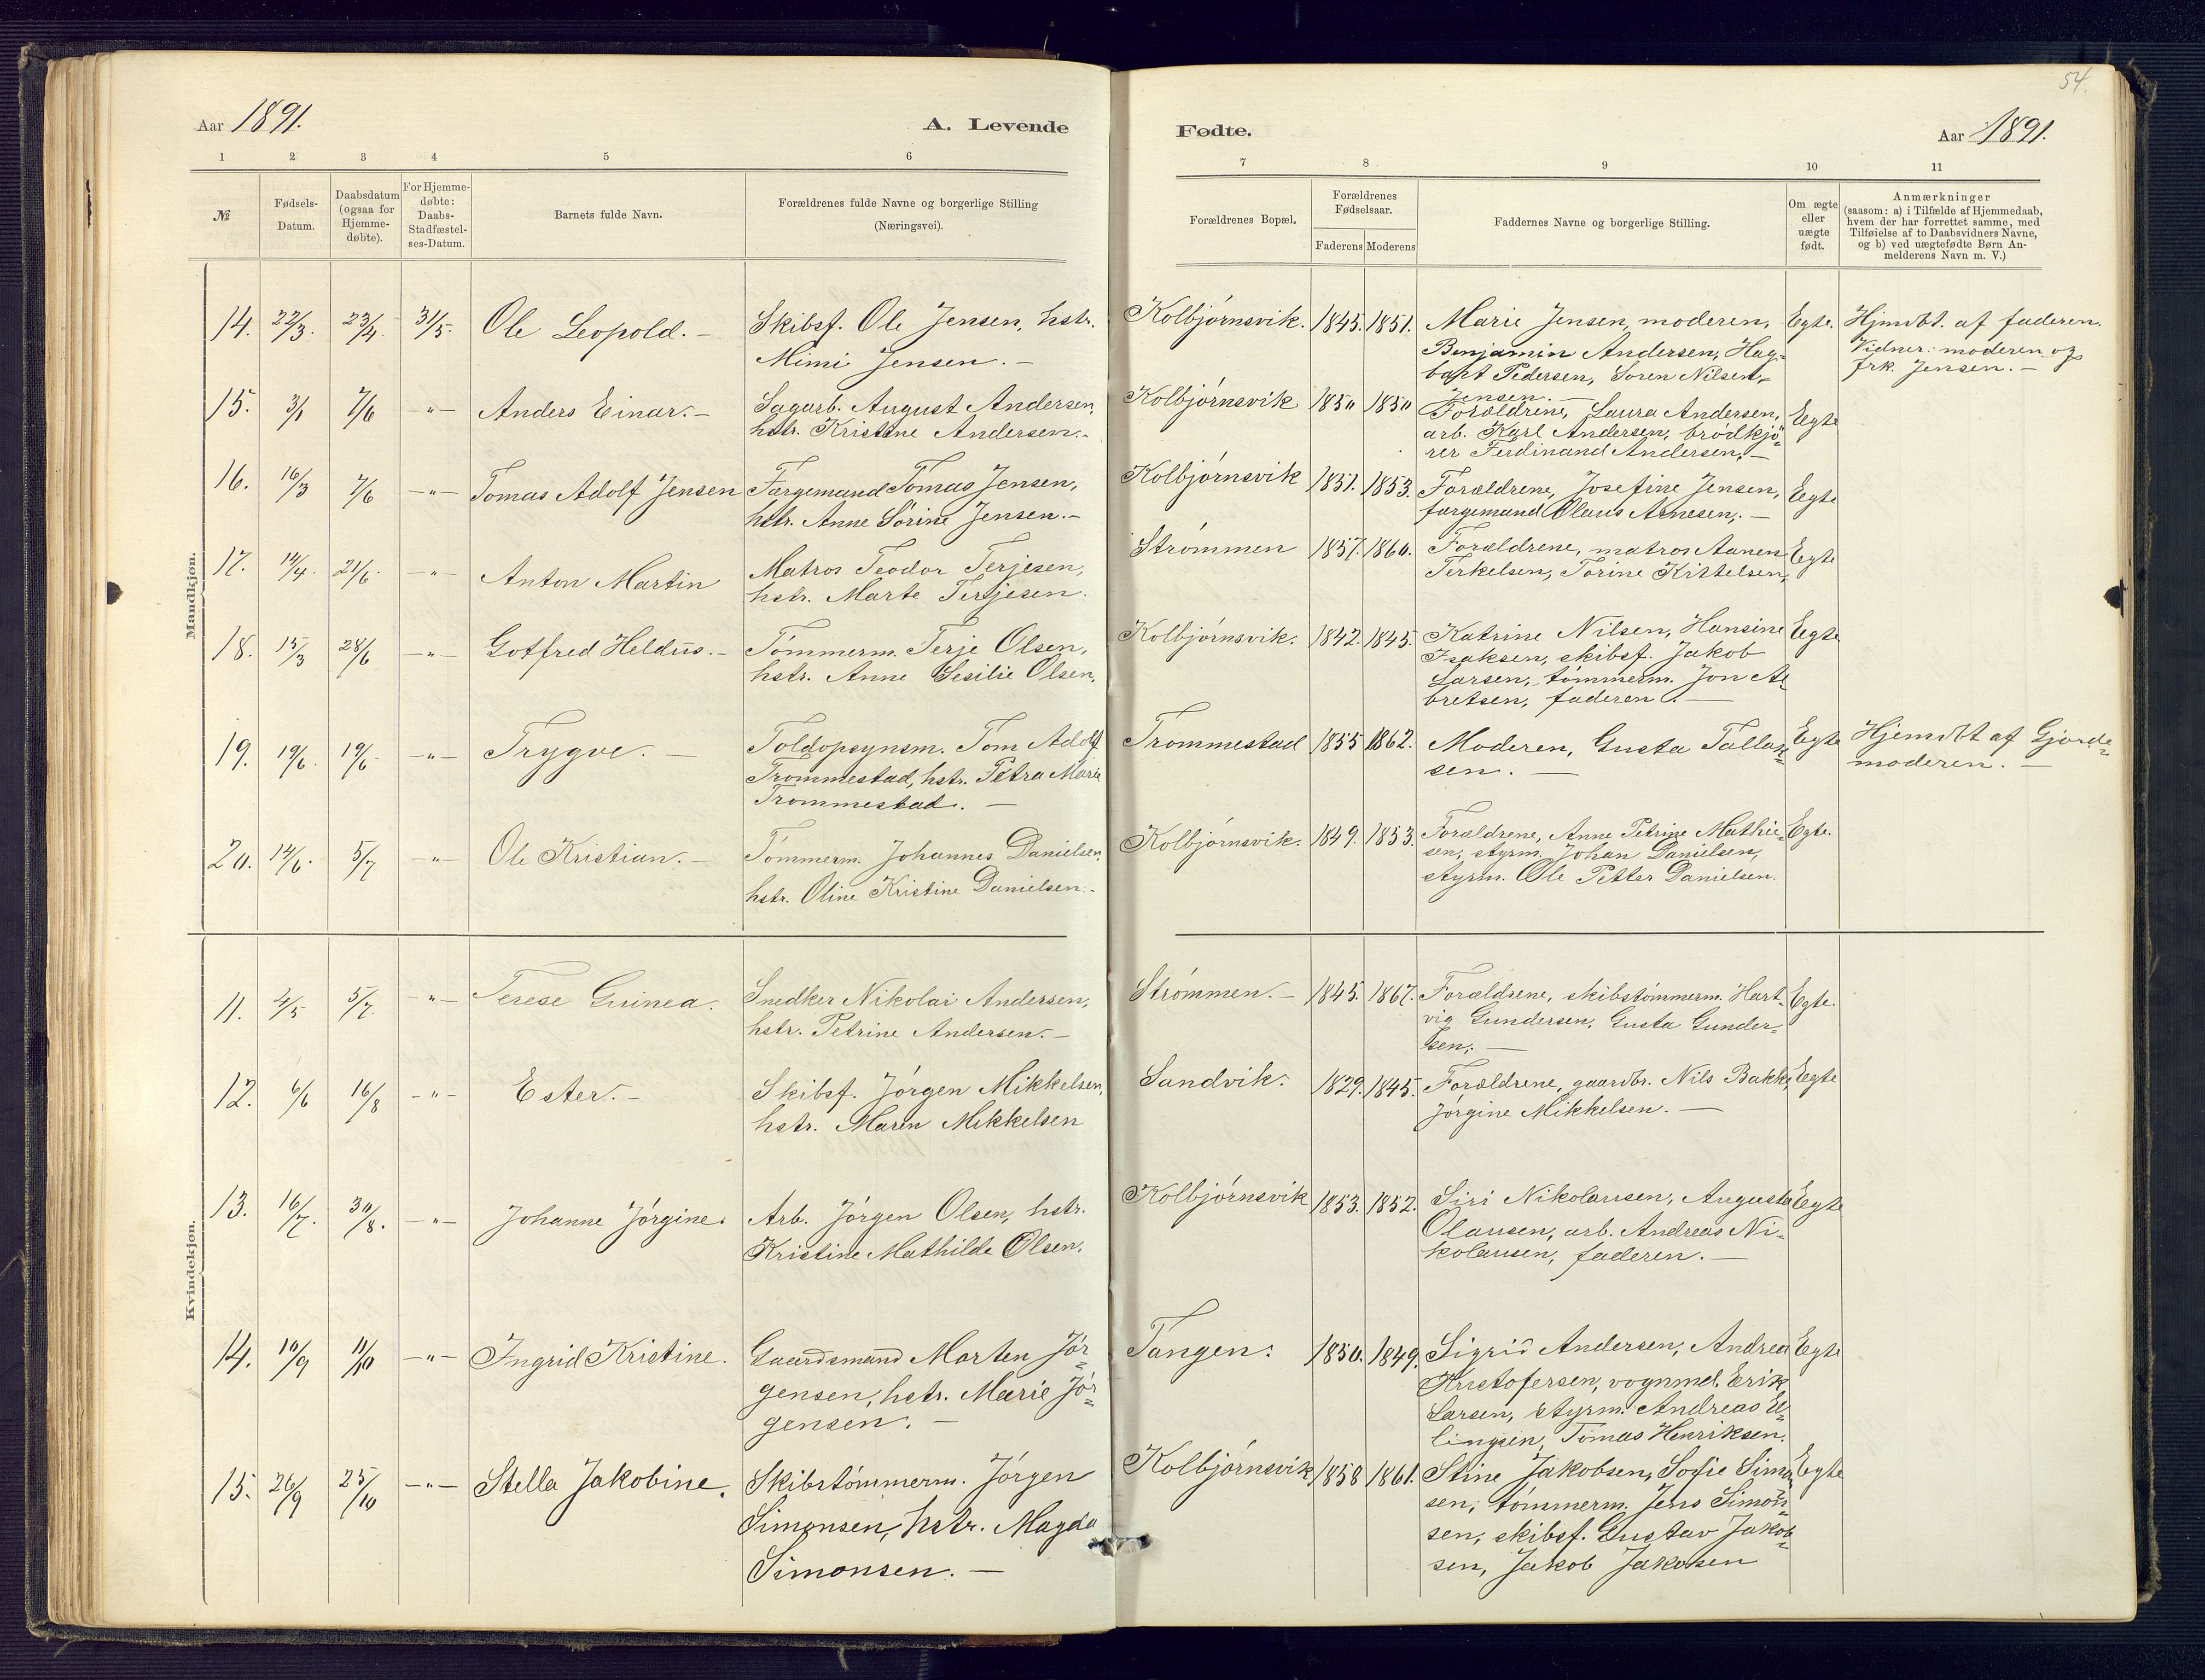 54.
Aar 1891.
A. Levende
Fødte.
Aar 1891.
1 2 3 4 5 6
7 8 9 10 11
№
Fødsels-
Datum.
Daabsdatum
(ogsaa for
Hjemme-
døbte).
For Hjemme-
døbte:
Daabs-
Stadfæstel-
ses-Datum.
Barnets fulde Navn.
Forældrenes fulde Navne og borgerlige Stilling
(Næringsvei).
Forældrenes Bopæl.
Forældrenes
Fødselsaar.
Faderens Moderens
Faddernes Navne og borgerlige Stilling.
Om ægte
eller
uægte
født.
Anmærkninger
(saasom: a) i Tilfælde af Hjemmedaab,
hvem der har forrettet samme, med
Tilføielse af to Daabsvidners Navne,
og b) ved uægtefødte Børn An-
melderens Navn m. V.)
Mandkjøn.
14. 22/3. 23/4. 31/5. Ole Leopold. -
Skibsf. Ole Jensen, hstr.
Mimi Jensen. -
Kolbjørnsvik. 1845. 1851.
Marie Jensen, moderen,
Benjamin Andersen, Hag-
bart Pedersen, Soren Nilsen,
Jensen. -
Egte.
Hjmdbt. af faderen.
Vidner: moderen og
frk. Jensen. -
15. 3/1 7/6 -"- Anders Einar. -
Sagarb. August Andersen,
hstr. Kristine Andersen. -
Kolbjørnsvik 1850 1850
Forældrene, Laura Andersen,
arb. Karl Andersen, brødkjø-
rer Ferdinand Andersen, -
Egte
16. 16/3 7/6 -"- Tomas Adolf Jensen
Færgemand Tomas Jensen,
hstr. Anne Sørine Jensen. -
Kolbjørnsvik 1851. 1853.
Forældrene, Josefine Jensen,
færgemand Olaus Arnesen, -
Egte
17. 14/4. 21/6. -"- Anton Martin
Matros Teodor Terjesen,
hstr. Marte Terjesen.
Strømmen 1857. 1860.
Forældrene, matros Aanen
Terkelsen, Torine Kittelsen,
Egte
18. 15/3 28/6 -"- Gotfred Heldus. -
Tømmerm. Terje Olsen,
hstr. Anne Sesilie Olsen.
Kolbjørnsvik. 1842. 1845.
Katrine Nilsen, Hansine
Isaksen, skibsf. Jakob
Larsen, tømmerm. Jon Al-
bretsen, faderen. -
Egte
19. 19/6. 19/6 -"- Trygve. -
Toldopsynsm. Tom Adolf
Trommestad, hstr. Petra Marie
Trommestad. -
Trommestad 1855 1862.
Moderen, Gusta Tallak-
sen. -
Egte
Hjemdbt af Gjorde-
moderen. -
20. 14/6. 5/7 -"- Ole Kristian. -
Tømmerm. Johannes Danielsen,
hstr. Oline Kristine Danielsen. -
Kolbjørnsvik. 1849. 1853.
Forældrene, Anne Petrine Mathie-
sen, styrm. Johan Danielsen,
styrm. Ole Petter Danielsen.
Egte.
Kvindekjøn.
11. 4/5 5/7. -"- Terese Guinea.
Snedker Nikolai Andersen,
hstr. Petrine Andersen. -
Strømmen. - 1845. 1867.
Forældrene, skibstømmerm. Hart-
vig Gundersen, Gusta Gunder-
sen, -
Egte.
12. 6/6 16/8 -"- Ester. -
Skibsf. Jørgen Mikkelsen,
hstr. Maren Mikkelsen
Sandvik. 1829. 1845.
Forældrene, gaardbr. Nils Bakke,
Jørgine Mikkelsen. -
Egte
13. 16/7. 30/8. -"- Johanne Jørgine.
Arb. Jørgen Olsen, hstr.
Kristine Mathilde Olsen.
Kolbjørnsvik 1853. 1852.
Siri Nikolausen, Augusta
Olausen, arb. Andreas Ni-
kolausen, faderen. -
Egte
14. 10/9 11/10 -"- Ingrid Kristine.
Gaardsmand Morten Jør-
gensen, hstr. Marie Jør-
gensen. -
Tangen. 1850. 1849.
Sigrid Andersen, Andrea
Kristofersen, vognmd. Erik
Larsen, styrm. Andreas El-
lingsen, Tomas Henriksen.
Egte
15. 26/9 25/10 -"- Stella Jakobine.
Skibstømmerm. Jørgen
Simonsen, hstr. Magda
Simonsen. -
Kolbjørnsvik 1858 1861.
Stine Jakobsen, Sofie Simon-
sen, tømmerm. Jens Simon-
sen, skibsf. Gustav Jakob-
sen, Jakob Jakobsen
Egte